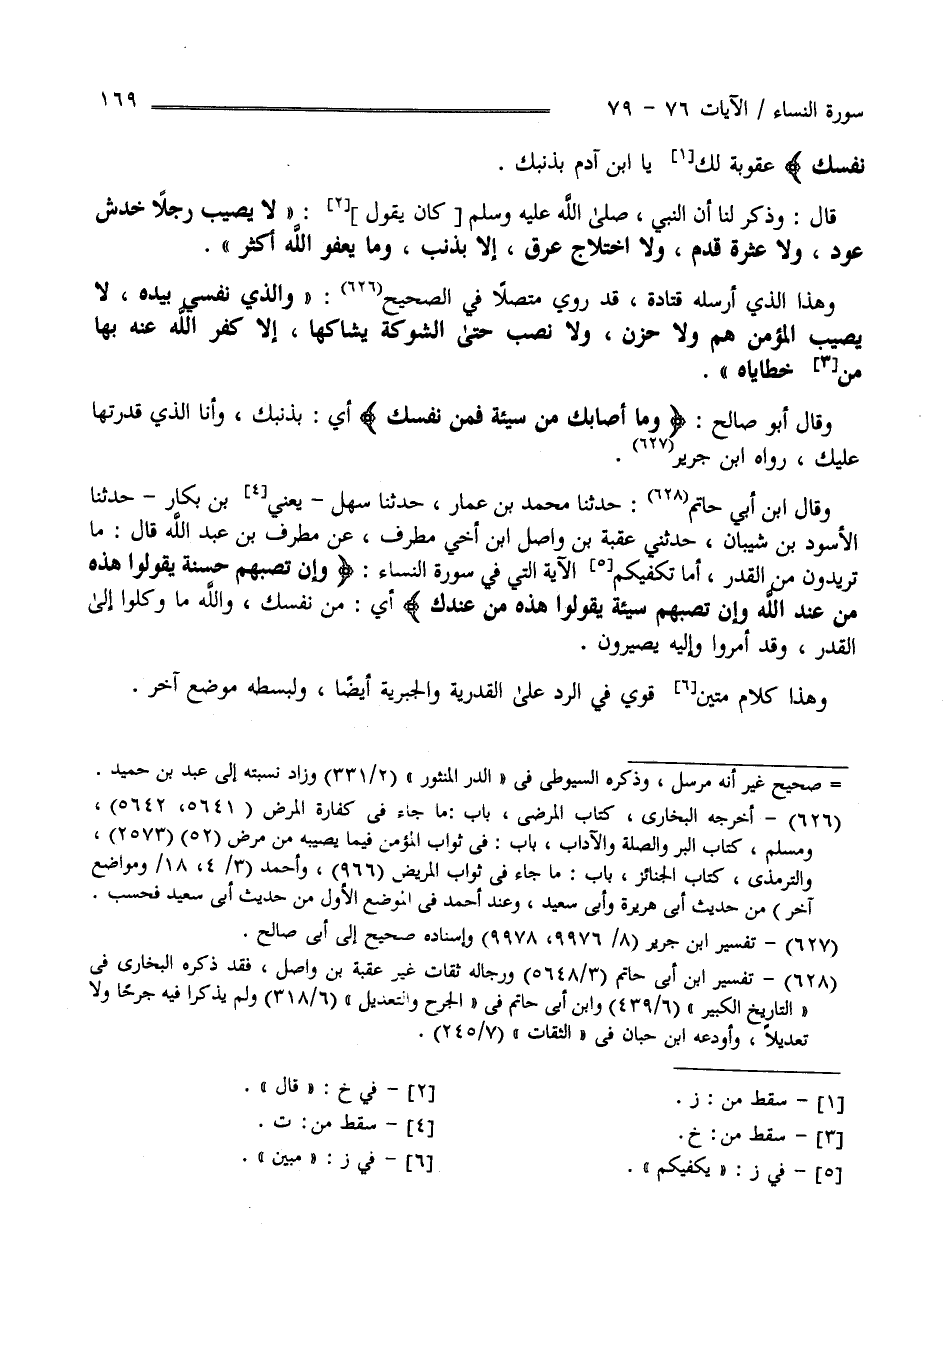 سورة النساء / الآيات ٧٦ - ٧٩ ١٦٩
نفسك ﴾ عقوبة لك[١] يا ابن آدم بذنبك .
قال : وذكر لنا أن النبي ، صلى الله عليه وسلم [ كان يقول ][٢] : « لا يصيب رجلًا خدش
عود ، ولا عثرة قدم ، ولا اختلاج عرق ، إلا بذنب ، وما يعفو اللَّه أكثر » .
وهذا الذي أرسله قتادة ، قد روي متصلًا في الصحيح(٦٢٦) : « والذي نفسي بيده ، لا
يصيب المؤمن هم ولا حزن ، ولا نصب حتى الشوكة يشاكها ، إلا كفر اللَّه عنه بها
من[٣] خطاياه » .
وقال أبو صالح : ﴿ وما أصابك من سيئة فمن نفسك ﴾ أي : بذنبك ، وأنا الذي قدرتها
عليك ، رواه ابن جرير(٦٢٧) .
وقال ابن أبي حاتم(٦٢٨) : حدثنا محمد بن عمار ، حدثنا سهل - يعني[٤] بن بكار - حدثنا
الأسود بن شيبان ، حدثني عقبة بن واصل ابن أخي مطرف ، عن مطرف بن عبد اللَّه قال : ما
تريدون من القدر ، أما تكفيكم[٥] الآية التي في سورة النساء : ﴿ وإن تصبهم حسنة يقولوا هذه
من عند اللَّه وإن تصبهم سيئة يقولوا هذه من عندك ﴾ أي : من نفسك ، واللَّه ما وكلوا إلى
القدر ، وقد أمروا وإليه يصيرون .
وهذا كلام متين[٦] قوي في الرد على القدرية والجبرية أيضًا ، ولبسطه موضع آخر .
= صحيح غير أنه مرسل ، وذكره السيوطى فى « الدر المنثور » (٣٣١/٢) وزاد نسبته إلى عبد بن حميد .
(٦٢٦) - أخرجه البخارى ، كتاب المرضى ، باب :ما جاء فى كفارة المرض ( ٥٦٤١، ٥٦٤٢) ،
ومسلم ، كتاب البر والصلة والآداب ، باب : فى ثواب المؤمن فيما يصيبه من مرض (٥٢) (٢٥٧٣) ،
والترمذى ، كتاب الجنائز ، باب : ما جاء فى ثواب المريض (٩٦٦) ، وأحمد (٣/ ٤، ١٨/ ومواضع
آخر ) من حديث أبى هريرة وأبى سعيد ، وعند أحمد فى الموضع الأول من حديث أبى سعيد فحسب .
(٦٢٧) - تفسير ابن جرير (٨/ ٩٩٧٦، ٩٩٧٨) وإسناده صحيح إلى أبى صالح .
(٦٢٨) - تفسير ابن أبى حاتم (٥٦٤٨/٣) ورجاله ثقات غير عقبة بن واصل ، فقد ذكره البخارى فى
« التاريخ الكبير » (٤٣٩/٦) وابن أبى حاتم فى « الجرح والتعديل » (٣١٨/٦) ولم يذكرا فيه جرحًا ولا
تعديلاً ، وأودعه ابن حبان فى « الثقات » (٢٤٥/٧) .
[١] - سقط من : ز . [٢] - في خ : « قال » .
[٣] - سقط من : خ. [٤] - سقط من : ت .
[٥] - في ز : « يكفيكم » . [٦] - في ز : « مبين » .